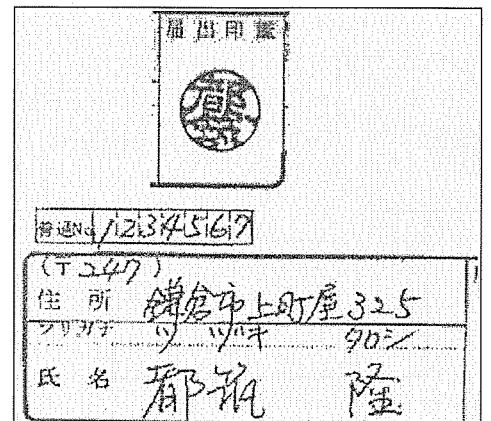 届出印鑑
普通No. 1234567
(〒247)
住所 鎌倉市上町屋325
フリガナ ツヅキ タカシ
氏名 都筑 隆